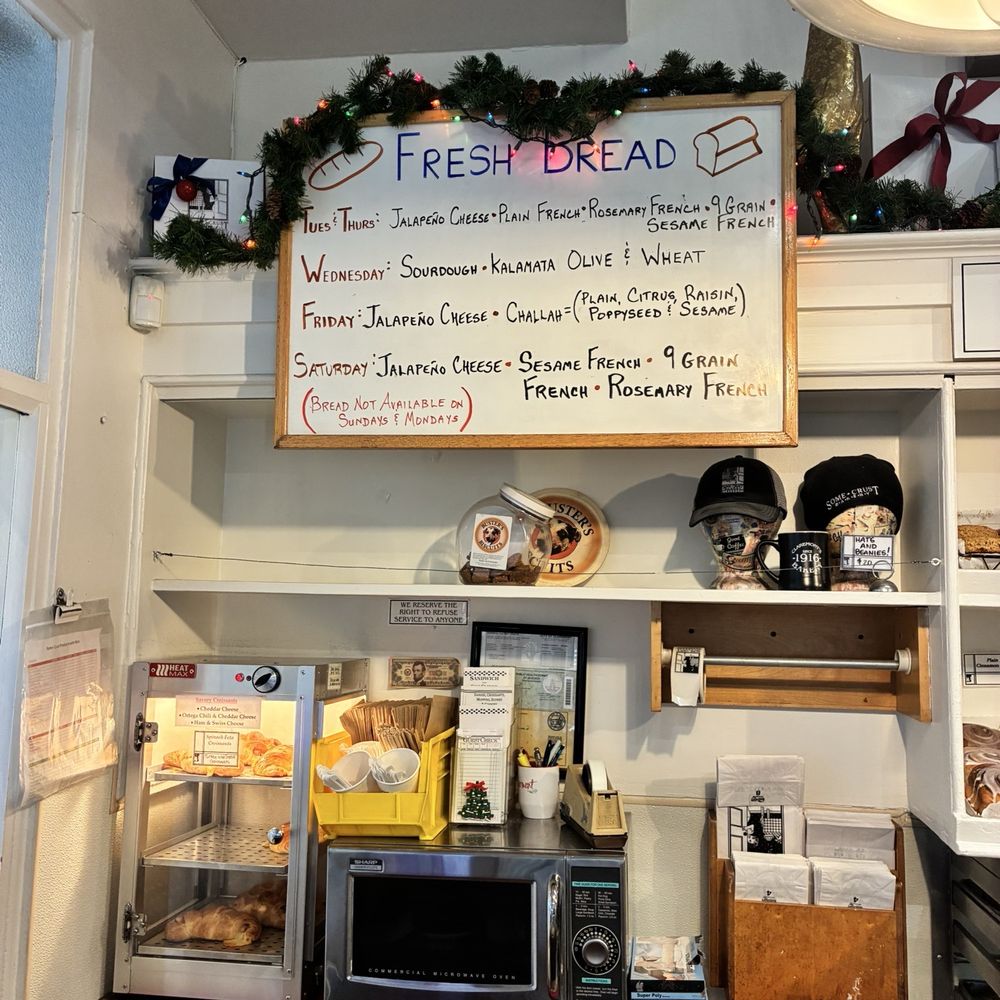 FRESH BREAD
TUES & THURS: JALAPEÑO CHEESE • PLAIN FRENCH • ROSEMARY FRENCH • 9 GRAIN •
SESAME FRENCH
WEDNESDAY: SOURDOUGH • KALAMATA OLIVE & WHEAT
FRIDAY: JALAPEÑO CHEESE • CHALLAH = (PLAIN, CITRUS, RAISIN,
POPPYSEED & SESAME)
SATURDAY: JALAPEÑO CHEESE • SESAME FRENCH • 9 GRAIN
FRENCH • ROSEMARY FRENCH
(BREAD NOT AVAILABLE ON
SUNDAYS & MONDAYS)
BUSTER'S
BISCUITS
SOME CRUST
BAKERY
CLAREMONT'S
SINCE
1916
BAKERY
HATS
AND
BEANIES!
$20
WE RESERVE THE
RIGHT TO REFUSE
SERVICE TO ANYONE
HEAT
MAX
Savory Croissants
• Cheddar Cheese
• Ortega Chili & Cheddar Cheese
• Ham & Swiss Cheese
Spinach Feta
Croissants
SANDWICH
GUEST CHECK
SHARP
COMMERCIAL MICROWAVE OVEN
Super Poly
Plain
Cinnamon